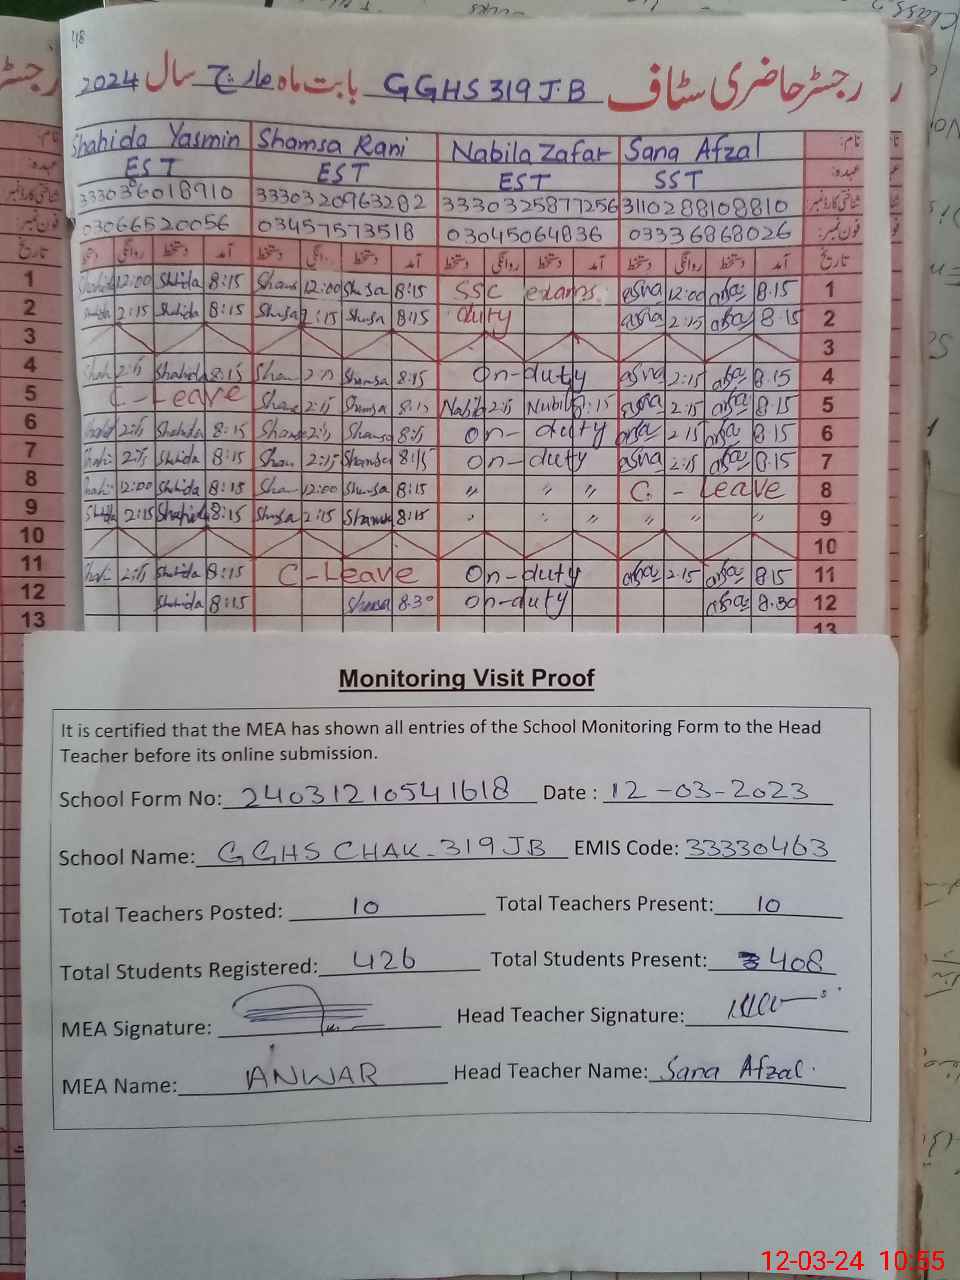 48
رجسٹر حاضری سٹاف GGHS 319 J.B بابت ماہ مارچ سال 2024
نام: Sana Afzal Nabila Zafar Shamsa Rani Shahida Yasmin
عہدہ: SST EST EST EST
شناختی کارڈ نمبر: 3110288108810 3330325877256 3330320963282 333036018910
فون نمبر: 03336868026 03045064836 03457573518 03066520056
تاریخ آمد دستخط روانگی دستخط آمد دستخط روانگی دستخط آمد دستخط روانگی دستخط آمد دستخط روانگی تاریخ
1 Shahida 12:00 Shahida 8:15 Sham 12:00 Shamsa 8:15 SSC exams 12:00 8.15 1
2 2:15 Shahida 8:15 Shamsa 2:15 Shamsa 8:15 duty 2:15 8.15 2
3 3
4 Shah 2:15 Shahida 8:15 Sham 2:15 Shamsa 8:15 On-duty 2:15 8.15 4
5 C-Leave Shams 2:15 Shamsa 8:15 Nabila 2:15 Nabila 8:15 2:15 8.15 5
6 2:15 Shahida 8:15 Shamsa 2:15 Shamsa 8:15 On-duty 2:15 8.15 6
7 2:15 Shahida 8:15 Sham 2:15 Shamsa 8:15 On-duty 2:15 8.15 7
8 12:00 Shahida 8:15 Sha 12:00 Shamsa 8:15 " " " C.-Leave 8
9 2:15 Shahida 8:15 Shamsa 2:15 Shamsa 8:15 " " " " " " 9
10 10
11 2:15 Shahida 8:15 C-Leave On-duty 2:15 8.15 11
12 Shahida 8:15 Shamsa 8.30 On-duty 8.30 12
13 13
Monitoring Visit Proof
It is certified that the MEA has shown all entries of the School Monitoring Form to the Head
Teacher before its online submission.
School Form No: 24031210541618 Date : 12-03-2023
School Name: GGHS CHAK-319 JB EMIS Code: 33330463
Total Teachers Posted: 10 Total Teachers Present: 10
Total Students Registered: 426 Total Students Present: 408
MEA Signature: Head Teacher Signature:
MEA Name: ANWAR Head Teacher Name: Sana Afzal.
12-03-24 10:55